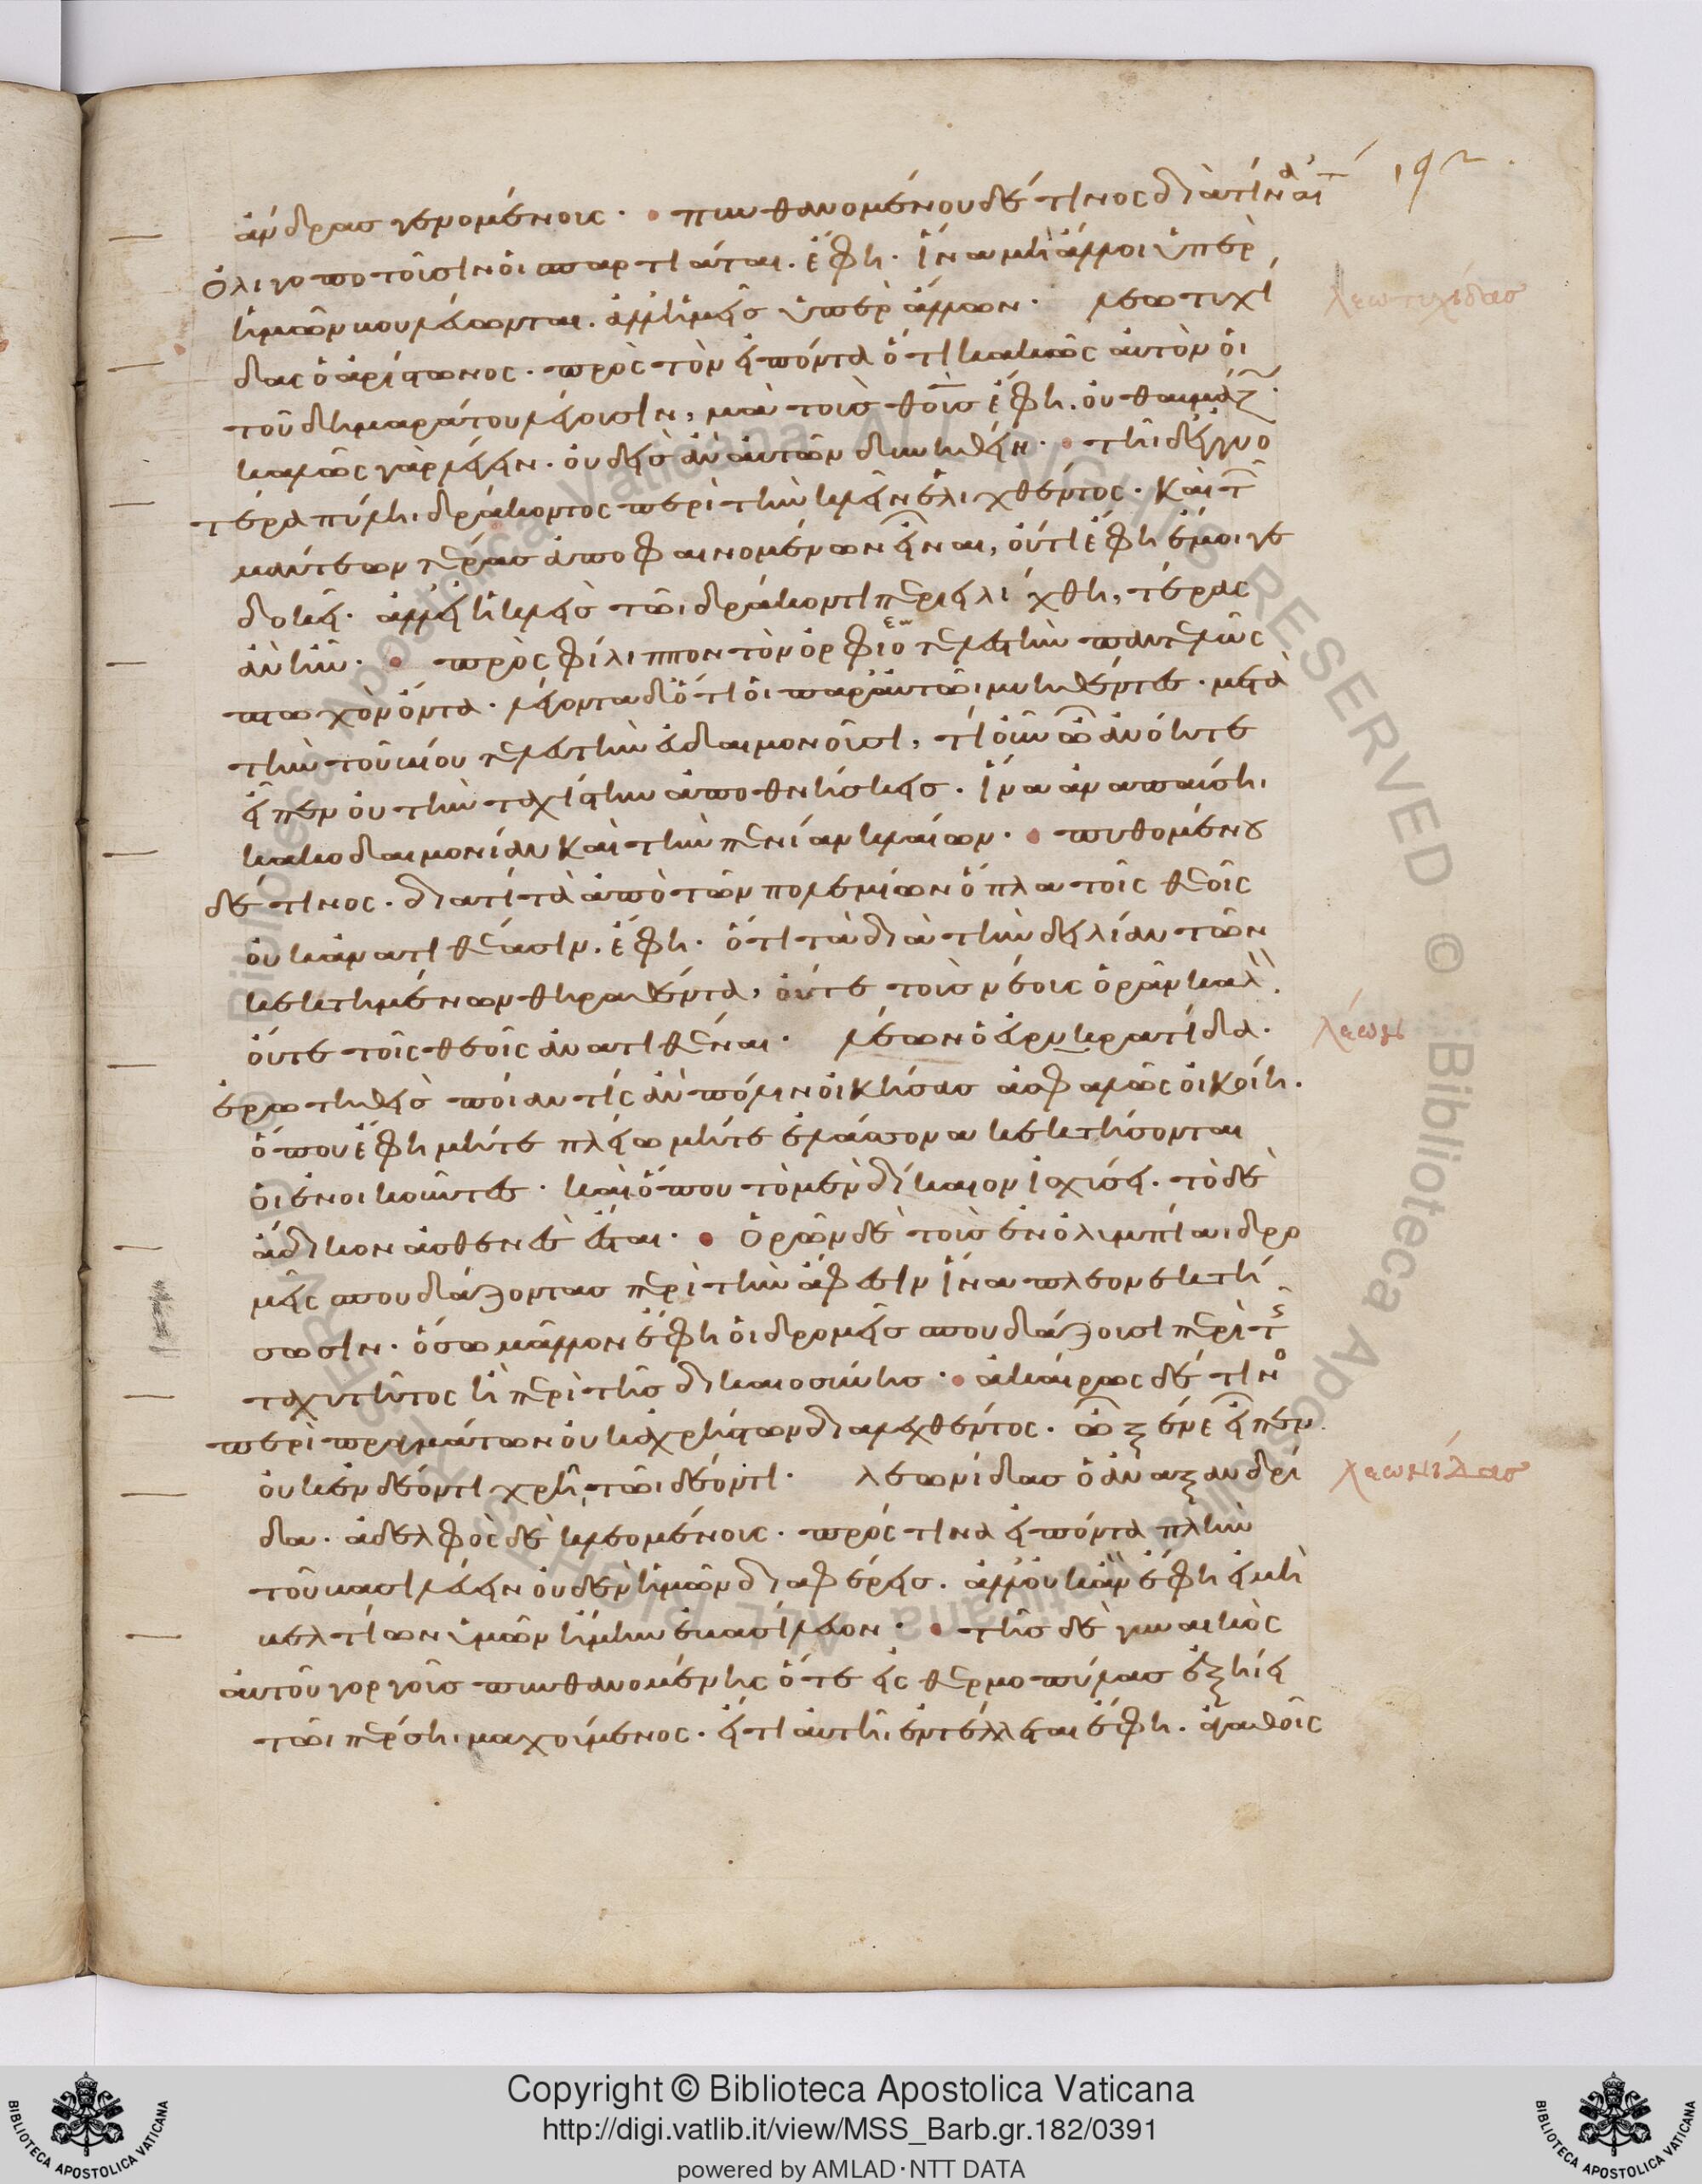 192.
ἄνδρας γενομένους · πυνθανομένου δέ τινος διατί ναι
ὀλιγοποτοῦσιν οἱ σπαρτιάται. ἔφη. ἵνα μὴ ἄλλοι ὑπὲρ
ἡμῶν βουλεύωνται. ἀλλ' ἡμεῖς ὑπὲρ ἄλλων · λεωτυχί
λεωτυχίδας
δας ὁ ἀρίστωνος · πρὸς τὸν εἰπόντα ὅτι κακῶς αὐτὸν οἱ
τοῦ δημαράτου λέγουσιν, μὰ τοὺς θεοὺς ἔφη. οὐ θαυμάζ
καλῶς γὰρ λέγειν. οὐδεὶς ἂν αὐτῶν δυνηθείη · τῆι δ' ἐγγυο
τέρα πύληι δράκοντος περὶ τὴν κλεῖν ἑλιχθέντος · καὶ τ
μάντεων τέρας ἀποφαινομένων εἶναι, οὔτι ἔφη ἔμοιγε
δοκεῖ · ἀλλ' εἰ ἡ κλεὶς τῶι δράκοντι περιειλίχθη, τέρας
ἂν ἦν · πρὸς φίλιππον τὸν ὀρφεο τελεστὴν παντελῶς
πτωχὸν ὄντα. λέγοντα δ' ὅτι οἱ παρ' αὐτῶι μυηθέντες · μετὰ
τὴν τοῦ βίου τελευτὴν εὐδαιμονοῦσι, τί οὖν ὦ ἀνόητε
εἶπεν οὐ τὴν ταχίστην ἀποθνήσκεις. ἵνα ἀναπαύσηι
κακοδαιμονίαν καὶ τὴν πενίαν κλαίων · πυθομένου
δέ τινος · διατί τὰ ἀπὸ τῶν πολεμίων ὅπλα τοῖς θεοῖς
οὐκ ἀνατιθέασιν. ἔφη · ὅτι τὰ διὰ τὴν δειλίαν τῶν
κεκτημένων θηραθέντα, οὔτε τοὺς νέους ὁρᾶν καλ
οὔτε τοῖς θεοῖς ἀνατιθέναι · λέων ὁ εὐρυκρατίδα ·
λέων
ἐρωτηθεὶς ποίαν τίς ἂν πόλιν οἰκήσας ἀσφαλῶς οἰκοίη.
ὅπου ἔφη μήτε πλείω μήτε ἐλάττονα κεκτήσονται
οἱ ἐνοικοῦντες · καὶ ὅπου τὸ μὲν δίκαιον ἰσχύσει. τὸ δὲ
ἄδικον ἀσθενὲς ἔσται · ὁρῶν δὲ τοὺς ἐν ὀλυμπίαι δρο
μεῖς σπουδάζοντας περὶ τὴν ἄφεσιν ἵνα πλεονεκτή
σωσιν · ὅσω μᾶλλον ἔφη οἱ δρομεῖς σπουδάζουσι περὶ τ
ταχυτῆτος ἢ περὶ τῆς δικαιοσύνης · ἀκαίρως δέ τινο
περὶ πραγμάτων οὐκ ἀχρήστων διαλεχθέντος · ὦ ξένε εἶπεν
οὐκ ἐν δέοντι χρῆι τῶι δέοντι · λεωνίδας ὁ ἀναξανδρί
λεωνίδας
δα · ἀδελφὸς δὲ κλεομένους · πρός τινα εἰπόντα πλὴν
τοῦ βασιλεύειν οὐδὲν ἡμῶν διαφέρεις. ἀλλ' οὐκ ἂν ἔφη εἰ μὴ
βελτίων ὑμῶν ἤμην ἐβασίλευον · τῆς δὲ γυναικὸς
αὐτοῦ γοργοῦς πυνθανομένης ὅτε εἰς θερμοπύλας ἐξήιει
τῶι πέρσηι μαχούμενος · εἴ τι αὐτῆι ἐντέλλεται ἔφη. ἀγαθοῖς